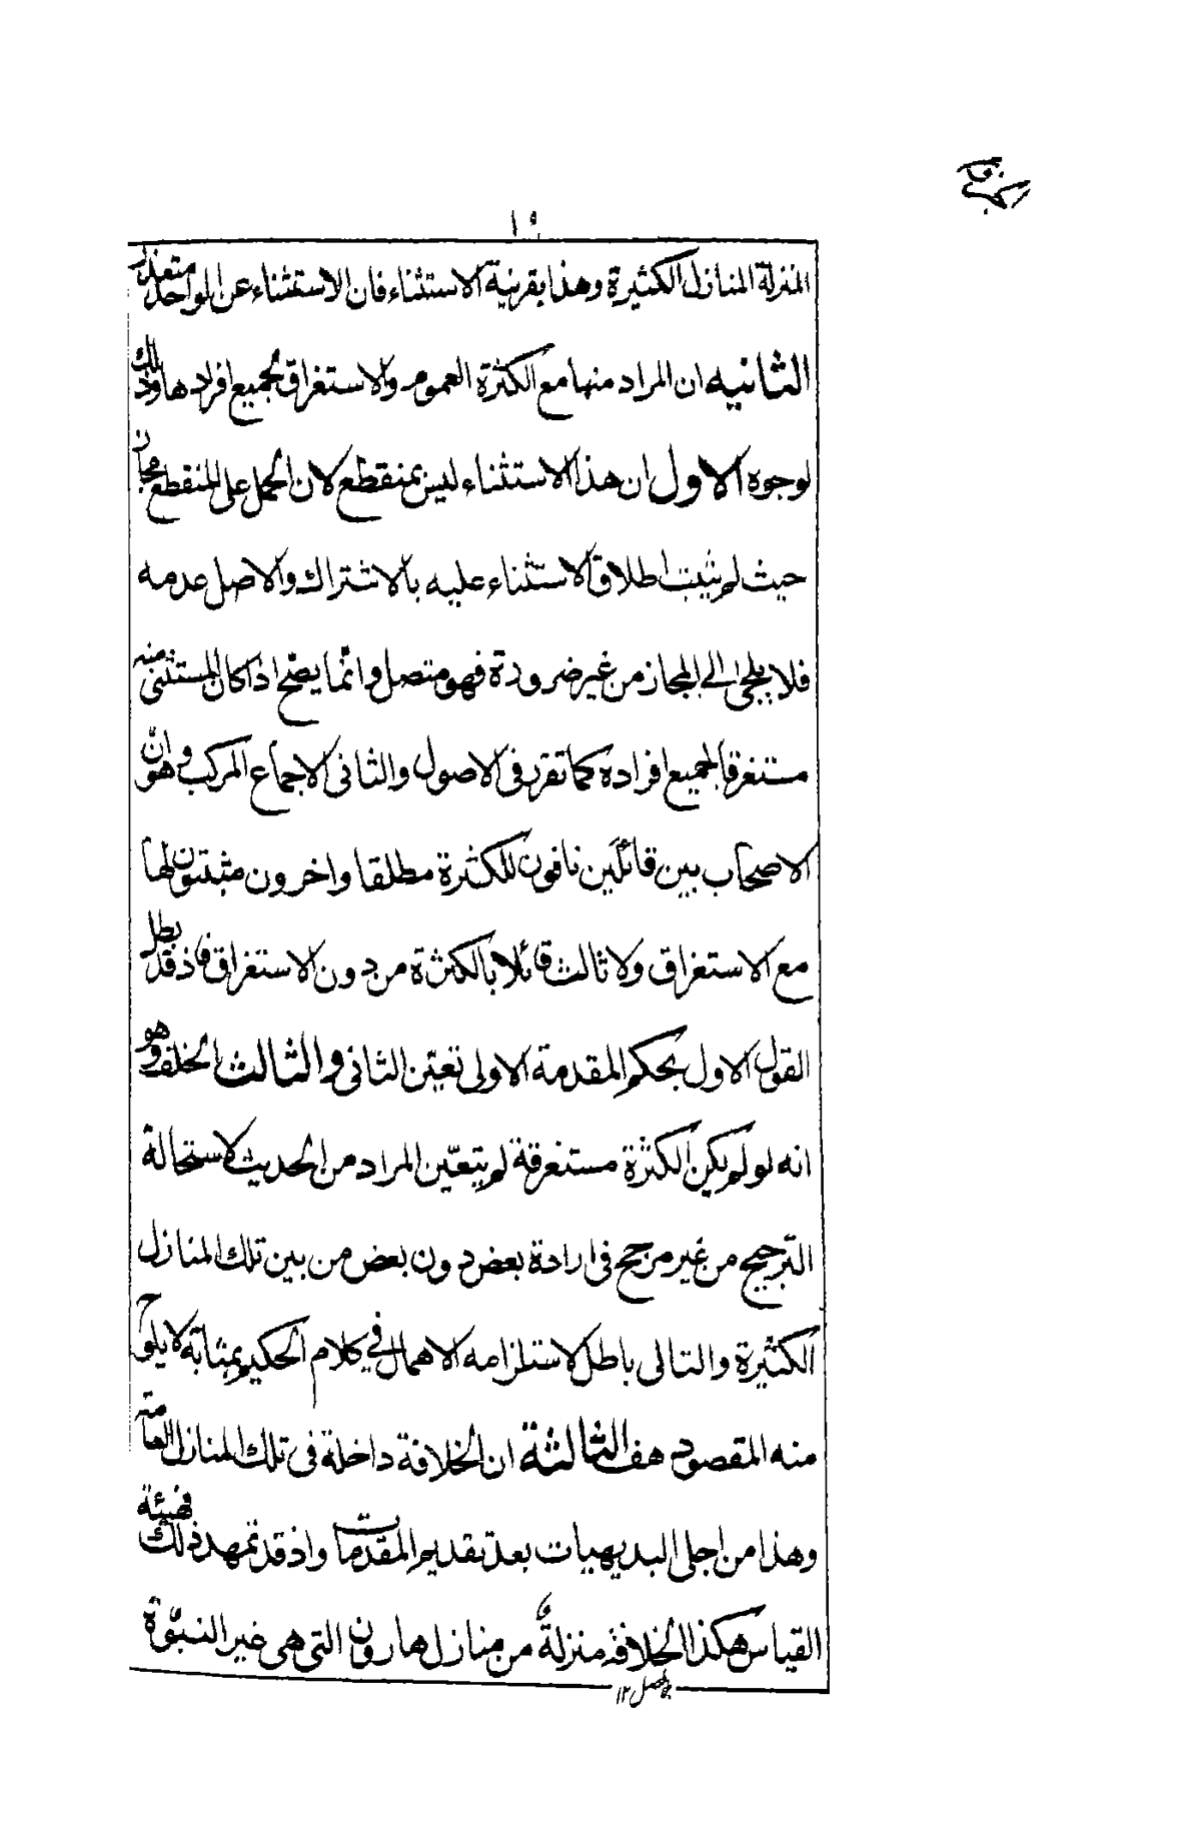 ١٩
المنزلة المنازل الكثيرة وهذا بقرنية الاستثناء فان الاستثناء عن الواحد متعذر
الثانيه ان المراد منها مع الكثرة العموم والاستغراق لجميع افرادها وذلك
لوجوه الاول ان هذا الاستثناء ليس بمنقطع لان الحمل على المنقطع مجاز
حيث لم يثبت اطلاق الاستثناء عليه بالاشتراك والاصل عدمه
فلا يلجئ الى المجاز من غير ضرورة فهو متصل وانّما يصّح اذا كان المستثنى منه
مستغرقا لجميع افراده كما تقرر فى الاصول والثانى الاجماع المركب وهو انّ
الاصحاب بين قائلَين نافون للكثرة مطلقا واخرون مثبتون لها
مع الاستغراق ولا ثالث قائلا بالكثرة من دون الاستغراق فاذ قد بطل
القول الاول بحكم المقدمة الاولى تعيّن الثانى والثالث الخلف وهو
انه لو لم يكن الكثرة مستغرقة لم يتعيّن المراد من الحديث لاستحالة
الترجيح من غير مرجح فى ارادة بعض دون بعض من بين تلك المنازل
الكثيرة والتالى باطل لاستلزامه الاهمال في كلام الحكيم بمثابة لا يلوح
منه المقصود هف الثالثة ان الخلافة داخلة فى تلك المنازل العامة
وهذا من اجلى البديهيات بعد تقديم المقدمات واذ قد تمهد ذلك فهيئة
القياس هكذا الخلافة منزلةٌ من منازل هارون التى هى غير النبوّة